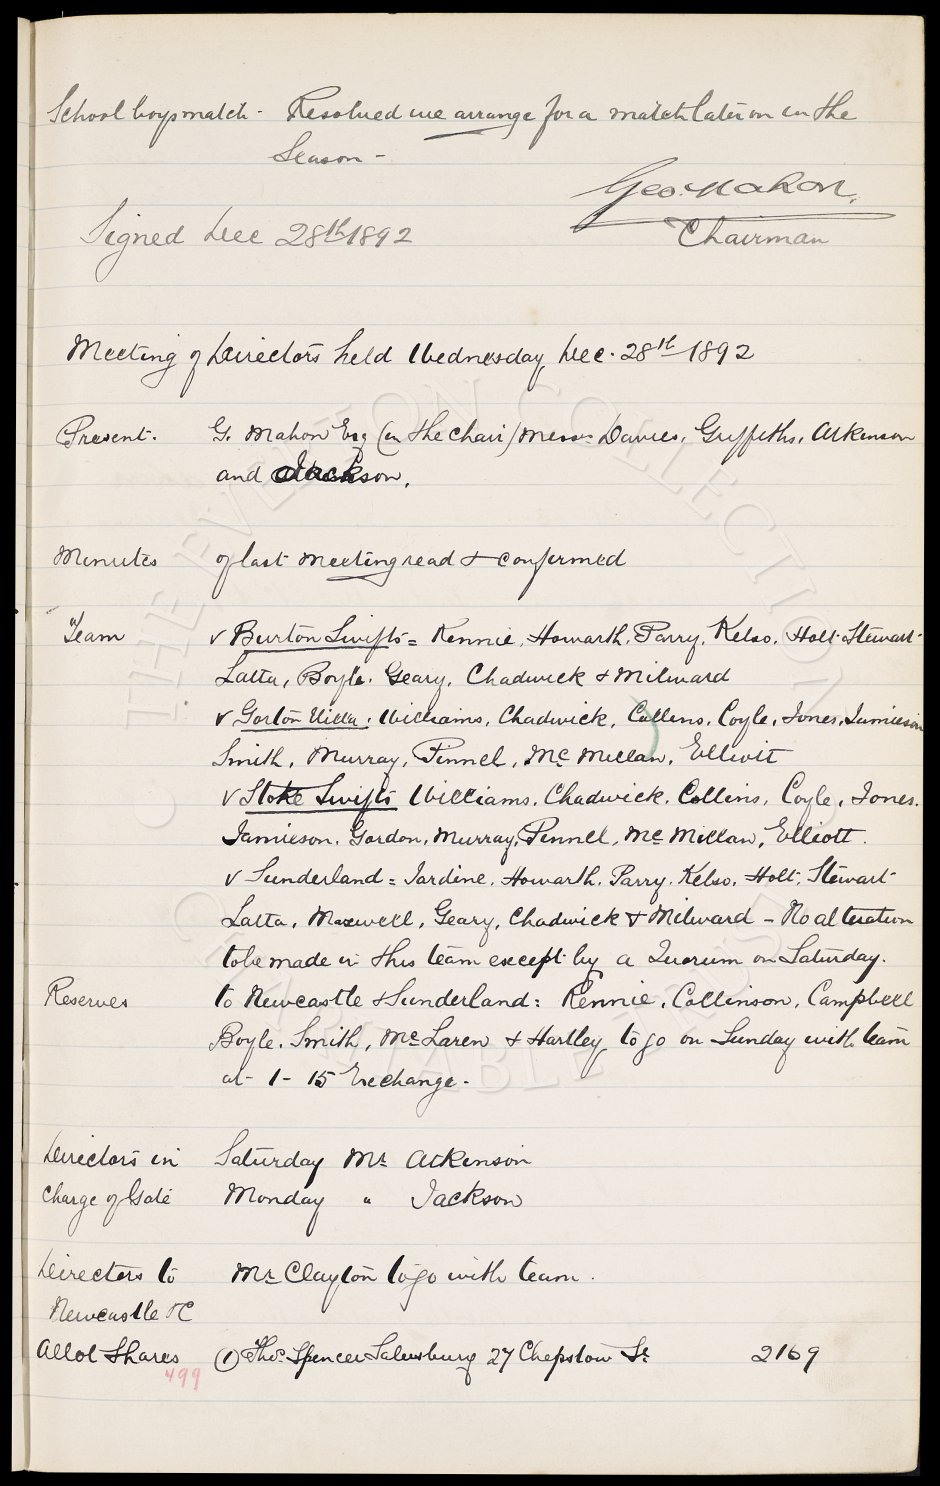 School boys match - Resolved we arrange for a match later on in the
Season -
Geo. Mahon.
Signed Dec 28th 1892
Chairman
Meeting of Directors held Wednesday, Dec. 28th 1892
Present. G. Mahon Esq (in the chair) Messrs Davies, Griffiths, Atkinson
and Jackson.
Minutes of last meeting read & confirmed
Team v Burton Swifts = Rennie, Howarth, Parry, Kelso, Holt, Stewart
Latta, Boyle, Geary, Chadwick & Milward
v Gorton Villa. Williams, Chadwick, Collins, Coyle, Jones, Jamieson
Smith, Murray, Pinnell, McMillan, Elliott
v Stoke Swifts Williams, Chadwick, Collins, Coyle, Jones.
Jamieson, Gordon, Murray, Pinnell, McMillan, Elliott.
v Sunderland = Jardine, Howarth, Parry, Kelso, Holt, Stewart
Latta, Maxwell, Geary, Chadwick & Milward - No alteration
to be made in this team except by a Quorum on Saturday.
Reserves to Newcastle & Sunderland: Rennie, Collinson, Campbell
Boyle, Smith, McLaren & Hartley to go on Sunday with team
at 1-15 Exchange.
Directors in Saturday Mr Atkinson
charge of Gate Monday " Jackson
Directors to Mr Clayton to go with team.
Newcastle &c
Allot Shares (1) Thos Spencer Salusbury 27 Chepstow St 2169
499
THE EVERTON COLLECTION
CHARITABLE TRUST